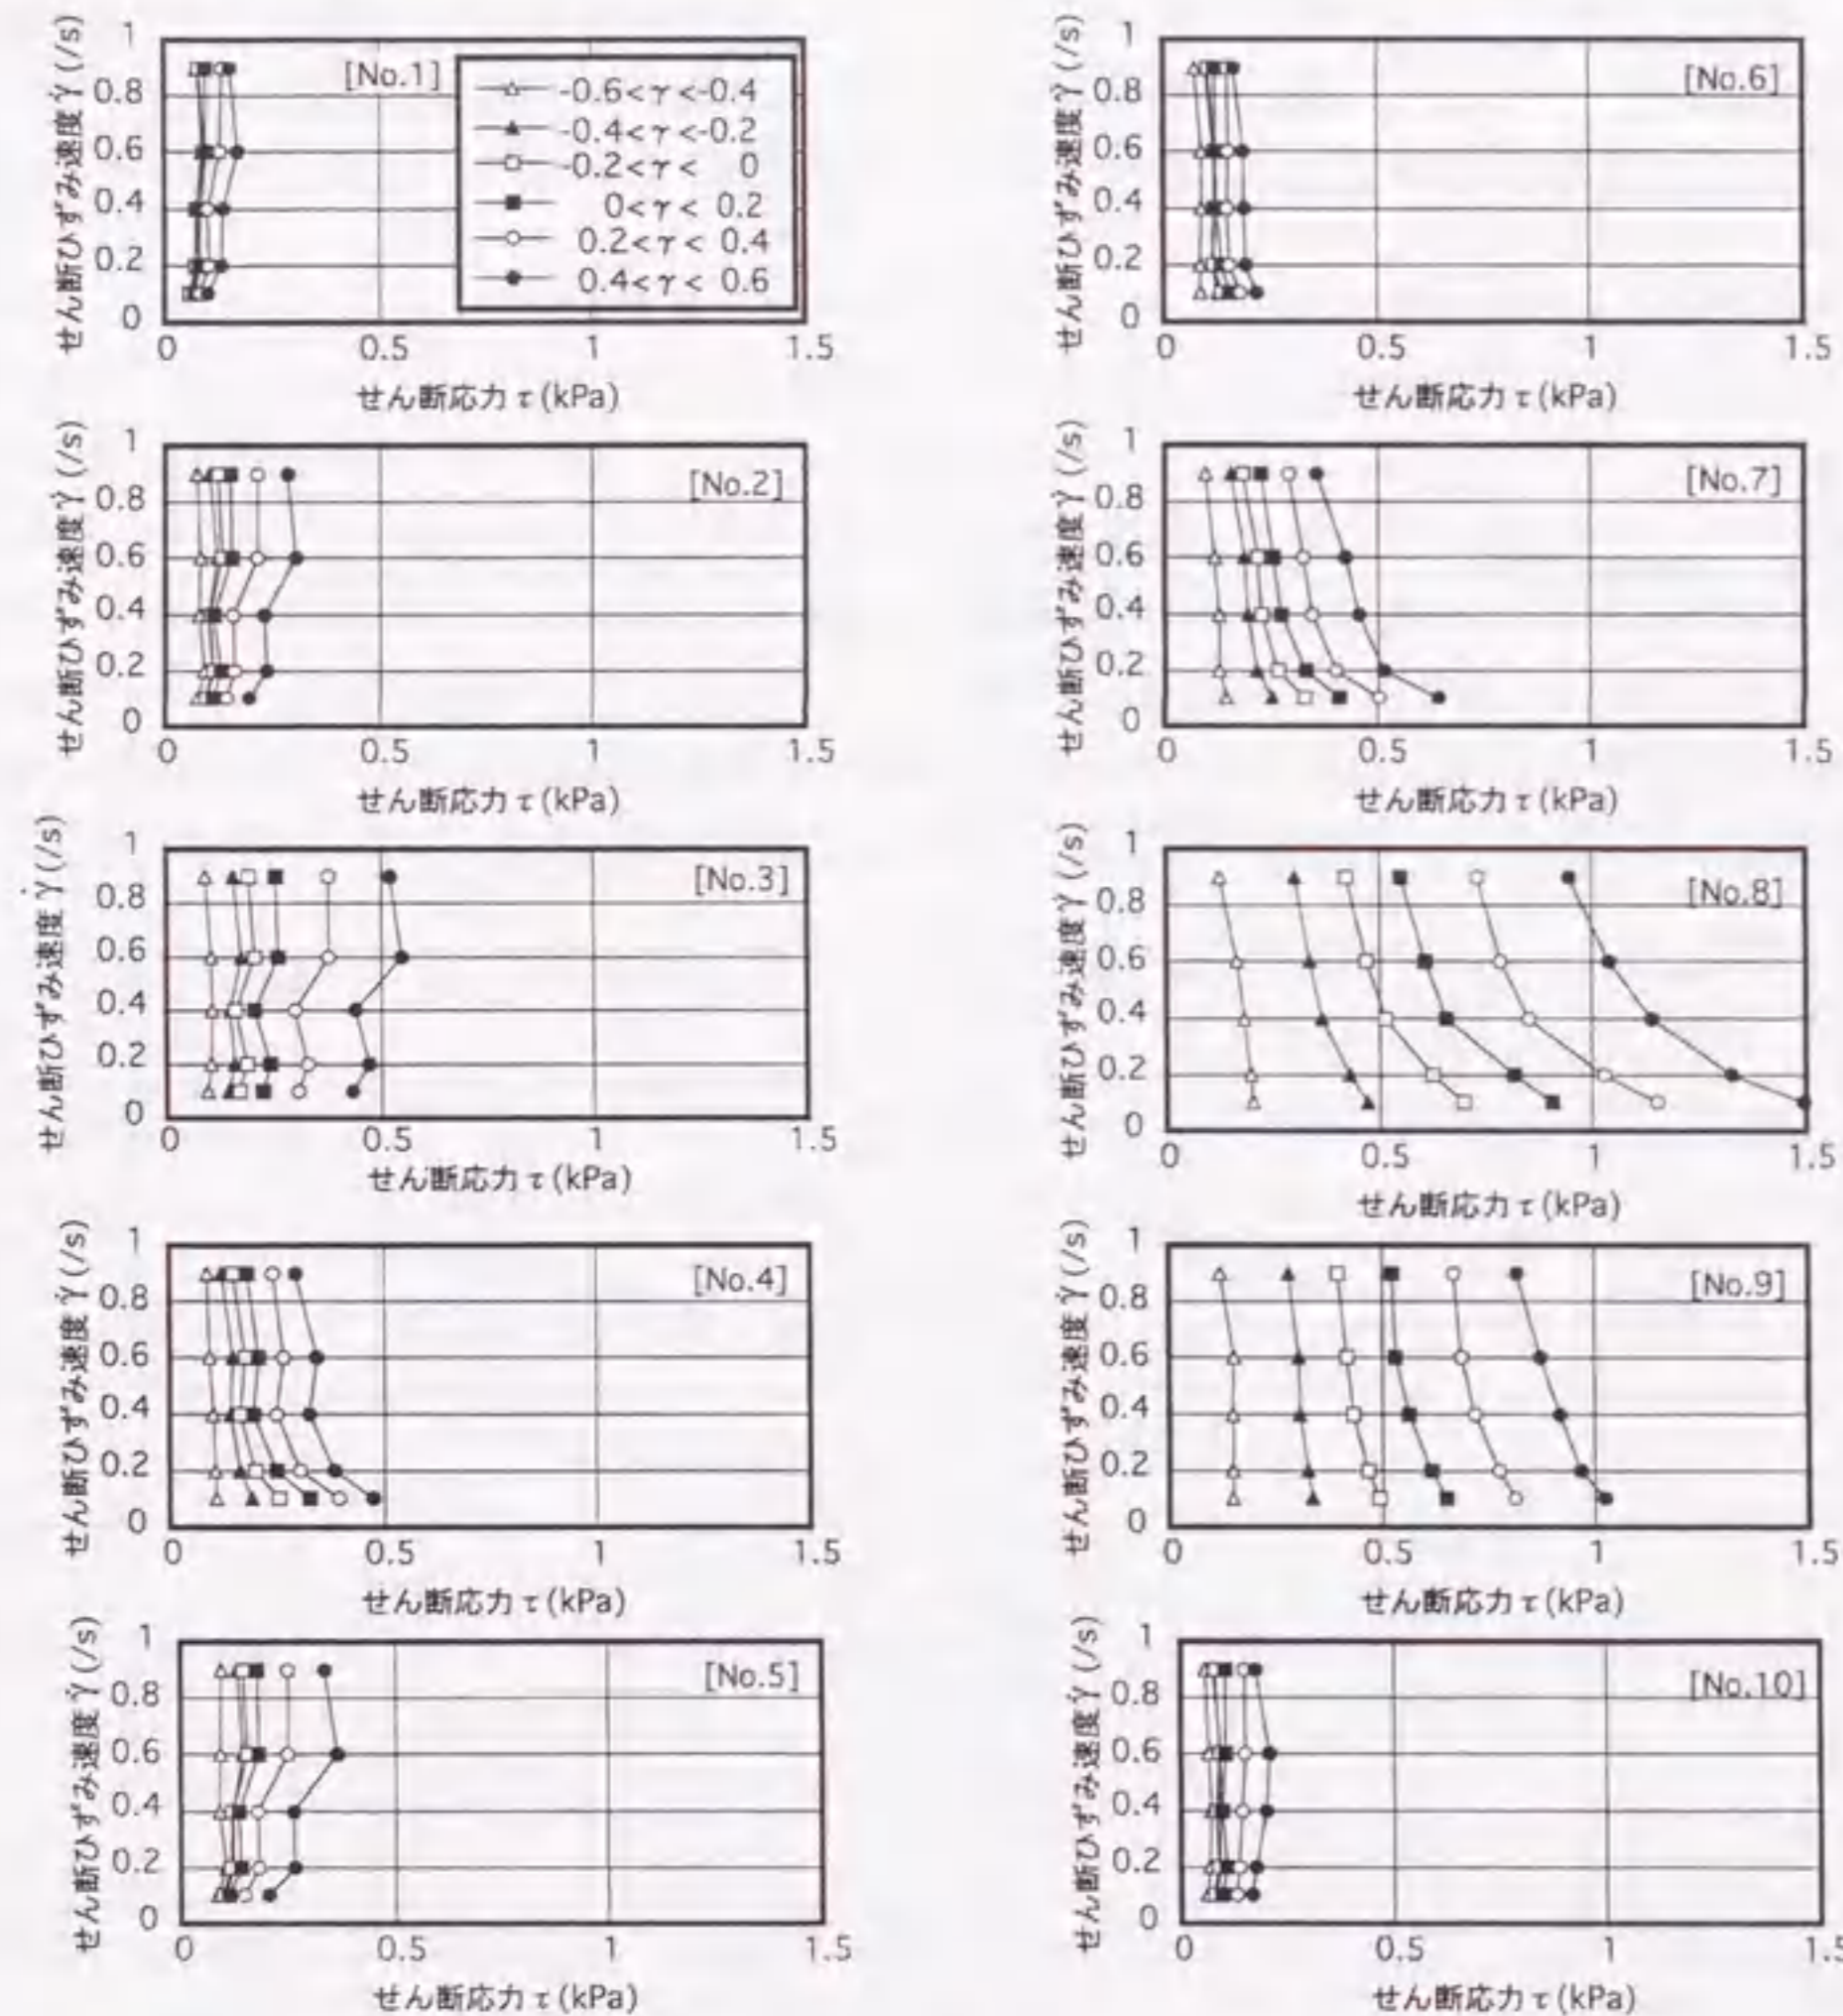 せん断ひずみ速度 γ̇ (/s)
1
0.8
0.6
0.4
0.2
0
[No.1]
-0.6<γ<-0.4
-0.4<γ<-0.2
-0.2<γ< 0
0<γ< 0.2
0.2<γ< 0.4
0.4<γ< 0.6
0 0.5 1 1.5
せん断応力 τ (kPa)
せん断ひずみ速度 γ̇ (/s)
1
0.8
0.6
0.4
0.2
0
[No.2]
0 0.5 1 1.5
せん断応力 τ (kPa)
せん断ひずみ速度 γ̇ (/s)
1
0.8
0.6
0.4
0.2
0
[No.3]
0 0.5 1 1.5
せん断応力 τ (kPa)
せん断ひずみ速度 γ̇ (/s)
1
0.8
0.6
0.4
0.2
0
[No.4]
0 0.5 1 1.5
せん断応力 τ (kPa)
せん断ひずみ速度 γ̇ (/s)
1
0.8
0.6
0.4
0.2
0
[No.5]
0 0.5 1 1.5
せん断応力 τ (kPa)
せん断ひずみ速度 γ̇ (/s)
1
0.8
0.6
0.4
0.2
0
[No.6]
0 0.5 1 1.5
せん断応力 τ (kPa)
せん断ひずみ速度 γ̇ (/s)
1
0.8
0.6
0.4
0.2
0
[No.7]
0 0.5 1 1.5
せん断応力 τ (kPa)
せん断ひずみ速度 γ̇ (/s)
1
0.8
0.6
0.4
0.2
0
[No.8]
0 0.5 1 1.5
せん断応力 τ (kPa)
せん断ひずみ速度 γ̇ (/s)
1
0.8
0.6
0.4
0.2
0
[No.9]
0 0.5 1 1.5
せん断応力 τ (kPa)
せん断ひずみ速度 γ̇ (/s)
1
0.8
0.6
0.4
0.2
0
[No.10]
0 0.5 1 1.5
せん断応力 τ (kPa)